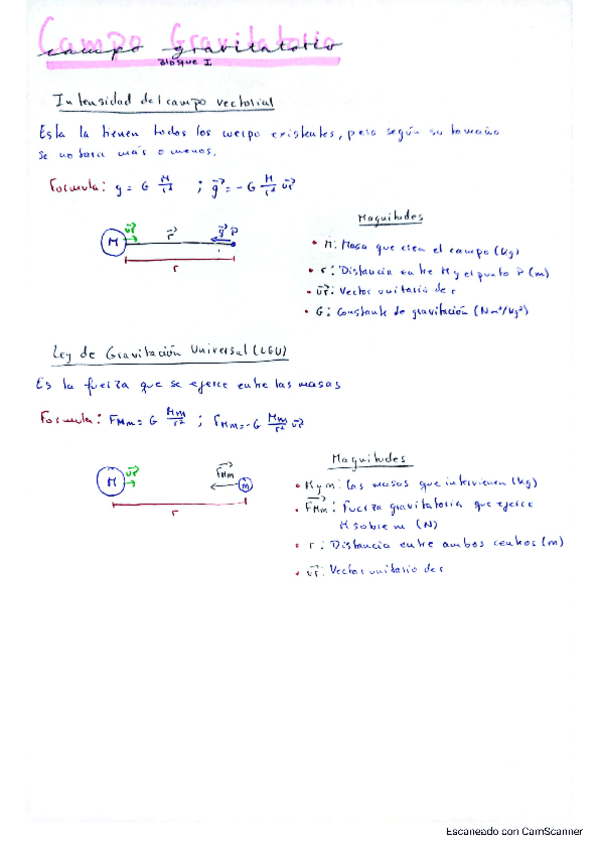 Campo Gravitatorio
campo gravitatorio
Bloque I
Intensidad del campo vectorial
Esta la tienen todos los cuerpo existentes, pero según su tamaño
se notara más o menos.
Formula: g = G M/r² ; g⃗ = - G M/r² u⃗r
M u⃗r r⃗ g⃗ P
r
Magnitudes
• M: Masa que crea el campo (kg)
• r: Distancia entre M y el punto P (m)
• u⃗r: Vector unitario de r
• G: Constante de gravitación (Nm²/kg²)
Ley de Gravitación Universal (LGU)
Es la fuerza que se ejerce entre las masas
Formula: FMm = G Mm/r² ; FMm = - G Mm/r² u⃗r
M u⃗r F⃗Mm m
r
Magnitudes
• M y m: Las masas que intervienen (kg)
• F⃗Mm: Fuerza gravitatoria que ejerce
M sobre m (N)
• r: Distancia entre ambos centros (m)
• u⃗r: Vector unitario de r
Escaneado con CamScanner